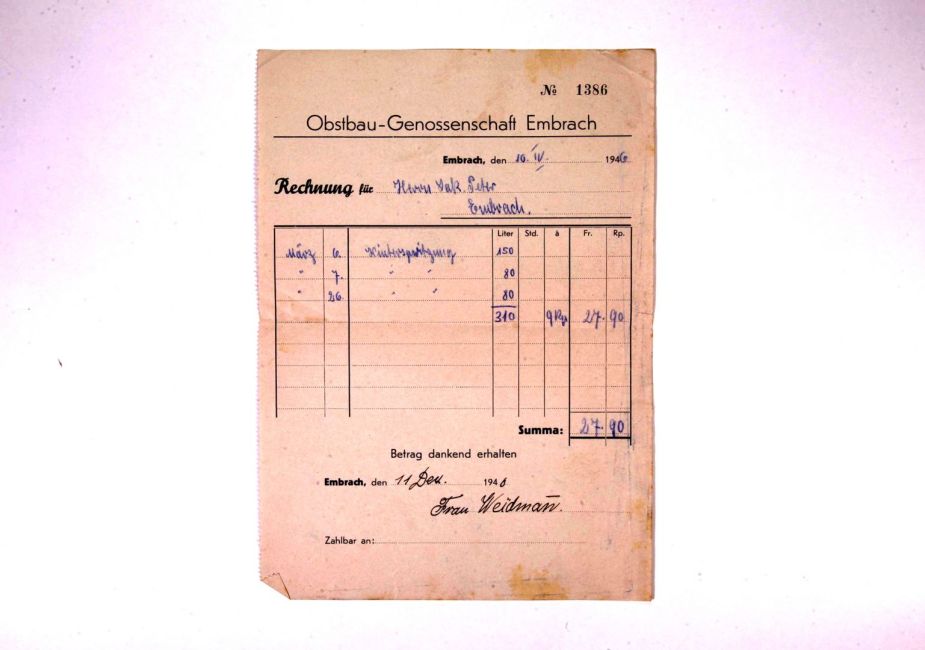 № 1386
Obstbau-Genossenschaft Embrach
Embrach, den 16. IV. 1946
Rechnung für Herrn Jak. Peter
Embrach.
Liter Std. à Fr. Rp.
März 6. Winterspritzung 150
" 7. " " 80
" 26. " " 80
310 9 Rp. 27. 90
Summa: 27. 90
Betrag dankend erhalten
Embrach, den 11 Dez. 194
Frau Weidmann.
Zahlbar an: